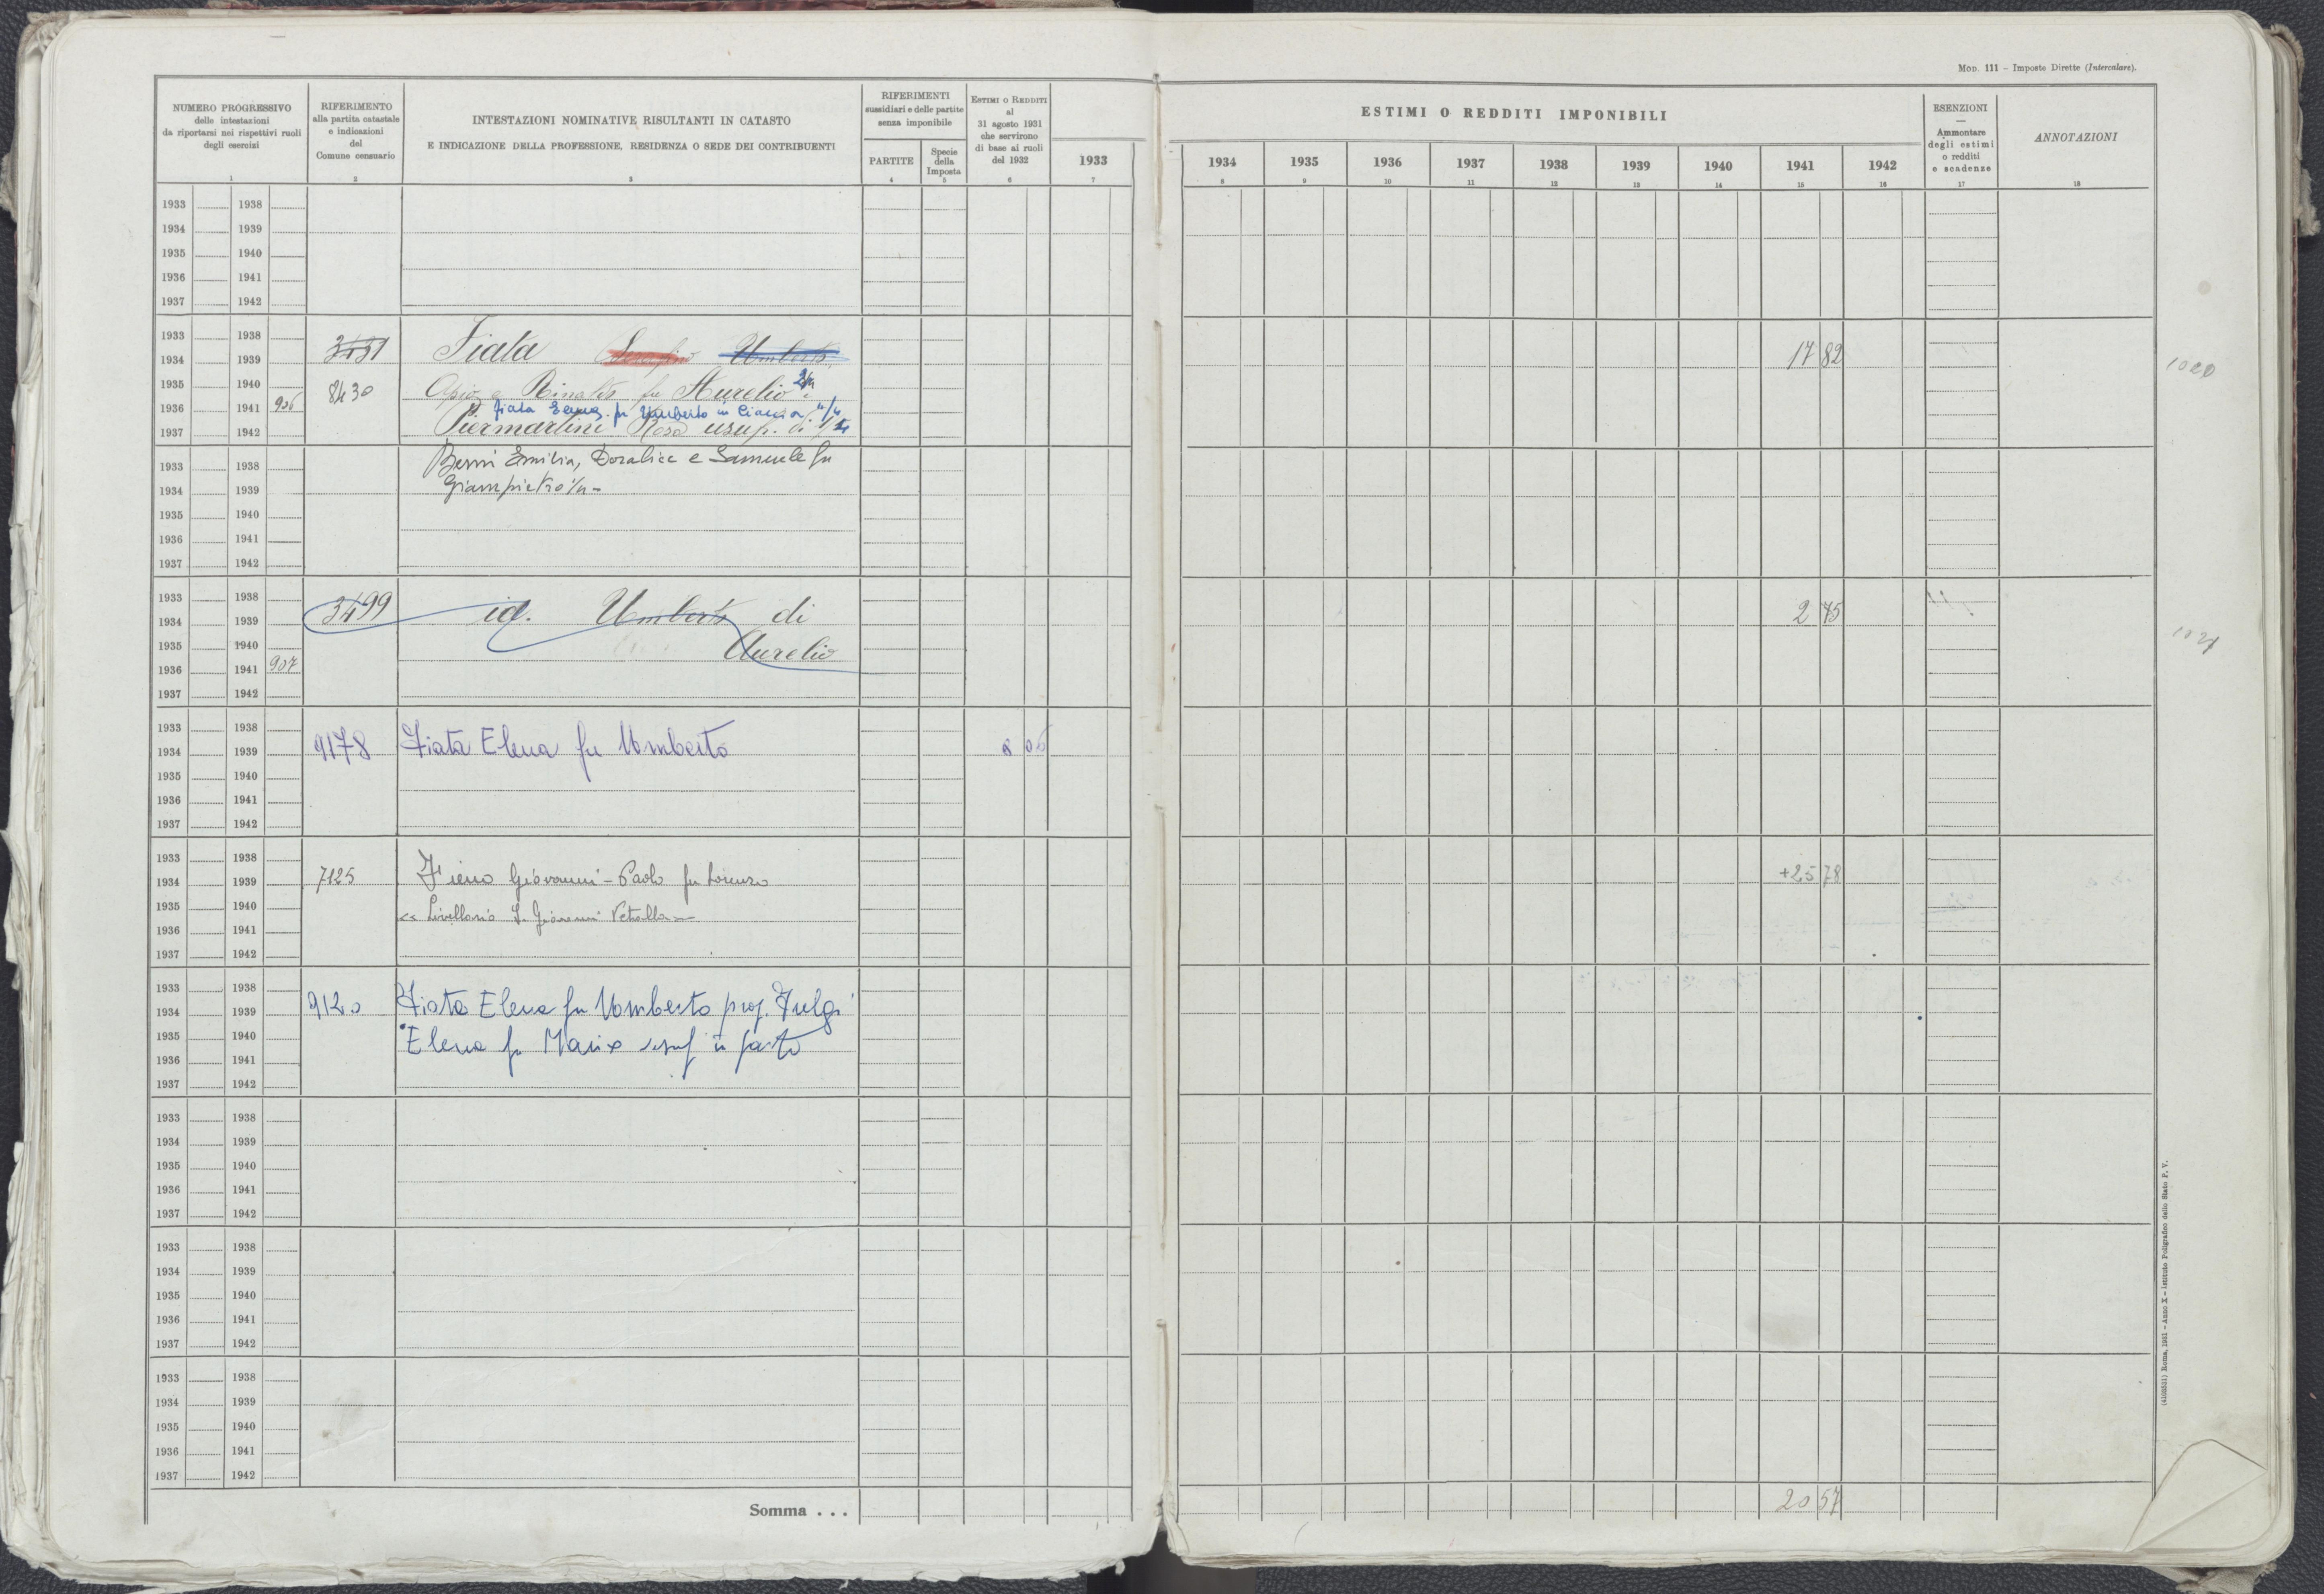 Mod. 111 – Imposte Dirette (Intercalare).
NUMERO PROGRESSIVO
delle intestazioni
da riportarsi nei rispettivi ruoli
degli esercizi
1
RIFERIMENTO
alla partita catastale
e indicazioni
del
Comune censuario
2
INTESTAZIONI NOMINATIVE RISULTANTI IN CATASTO
E INDICAZIONE DELLA PROFESSIONE, RESIDENZA O SEDE DEI CONTRIBUENTI
3
RIFERIMENTI
sussidiari e delle partite
senza imponibile
PARTITE
4
Specie
della
Imposta
5
ESTIMI O REDDITI
al
31 agosto 1931
che servirono
di base ai ruoli
del 1932
6
1933
7
ESTIMI O REDDITI IMPONIBILI
1934 1935 1936 1937 1938 1939 1940 1941 1942
8 9 10 11 12 13 14 15 16
ESENZIONI
—
Ammontare
degli estimi
o redditi
e scadenze
17
ANNOTAZIONI
18
1933 1938
1934 1939
1935 1940
1936 1941
1937 1942
1933 1938
3431 Fiata Umberto 17 82
1934 1939
1020
1935 1940
8430 Rinaldo fu Aurelio
1936 1941 906
Fiata Elena fu Umberto in
1937 1942
Piermartini Rosa usuf. di
1933 1938
Berni Emilia, Doralice e Samuele fu
1934 1939
Giampietro
1935 1940
1936 1941
1937 1942
1933 1938
3499 id. Umberto di 2 75
1934 1939
1021
1935 1940
Aurelio
1936 1941 907
1937 1942
1933 1938
1934 1939
9178 Fiata Elena fu Umberto
1935 1940
1936 1941
1937 1942
1933 1938
1934 1939
7125 Fieno Giovanni-Paolo fu Lorenzo +25 78
1935 1940
Livellario S. Giovanni Vetralla
1936 1941
1937 1942
1933 1938
1934 1939
9120 Fiata Elena fu Umberto prop. Fulgi
1935 1940
Elena fu Mario usuf in parte
1936 1941
1937 1942
1933 1938
1934 1939
1935 1940
1936 1941
1937 1942
1933 1938
1934 1939
1935 1940
1936 1941
1937 1942
1933 1938
1934 1939
1935 1940
1936 1941
1937 1942
Somma . . . 20 57
(4103531) Roma, 1931 – Anno X – Istituto Poligrafico dello Stato P. V.